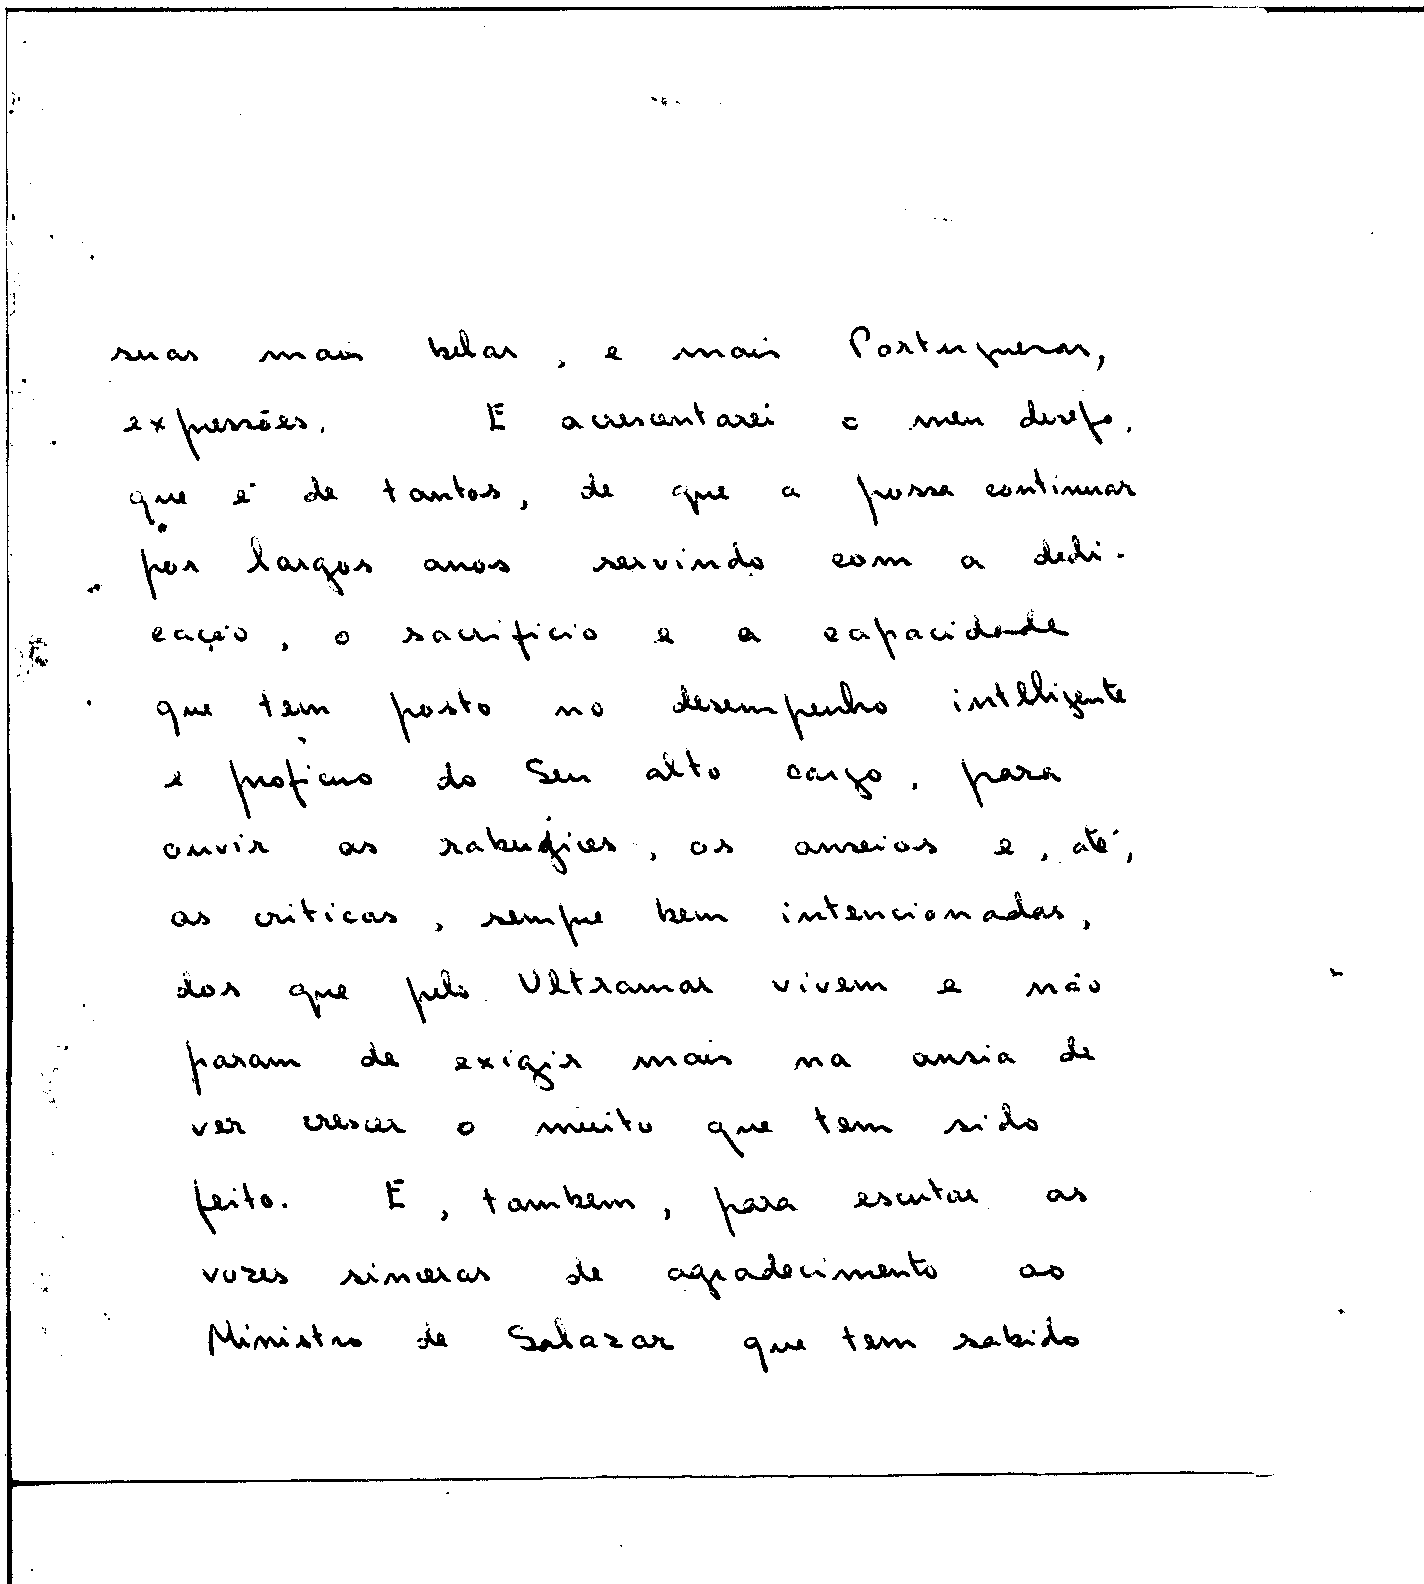 suas mais belas, e mais Portuguesas,
expressões. E acrescentarei o meu desejo,
que é de tantos, de que a possa continuar
por largos anos servindo com a dedi-
cação, o sacrificio e a capacidade
que tem posto no desempenho intelligente
e proficuo do Seu alto cargo, para
ouvir as rabugices, os anseios e, até,
as criticas, sempre bem intencionadas,
dos que pelo Ultramar vivem e não
param de exigir mais na ansia de
ver crescer o muito que tem sido
feito. E, tambem, para escutar as
vozes sinceras de agradecimento ao
Ministro de Salazar que tem sabido